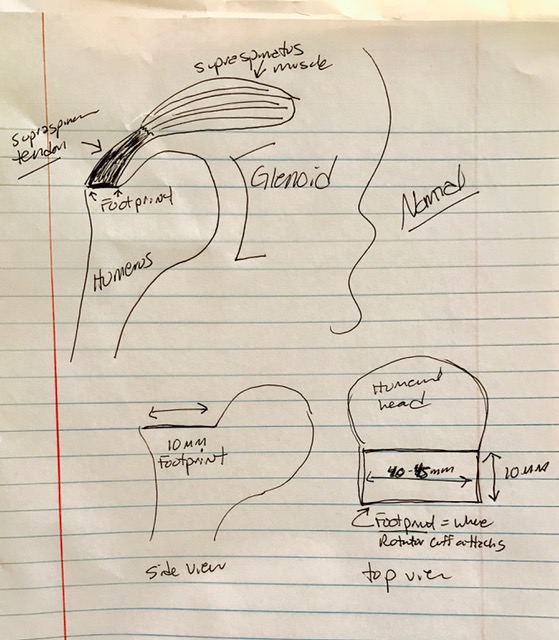 supraspinatus
muscle
supraspin
tendon
Footprint
Glenoid
Normal
Humerus
10 MM
Footprint
side view
Humeral
head
40-45mm
10 MM
Footprint = where
Rotator cuff attachs
top view